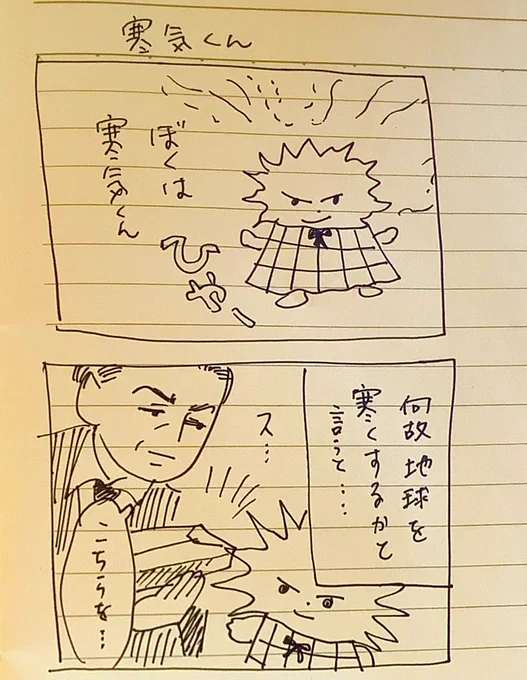 寒気くん
ぼくは
寒気くん
ひやー
何故地球を
寒くするかて
言うと…
ス…
こちらを…